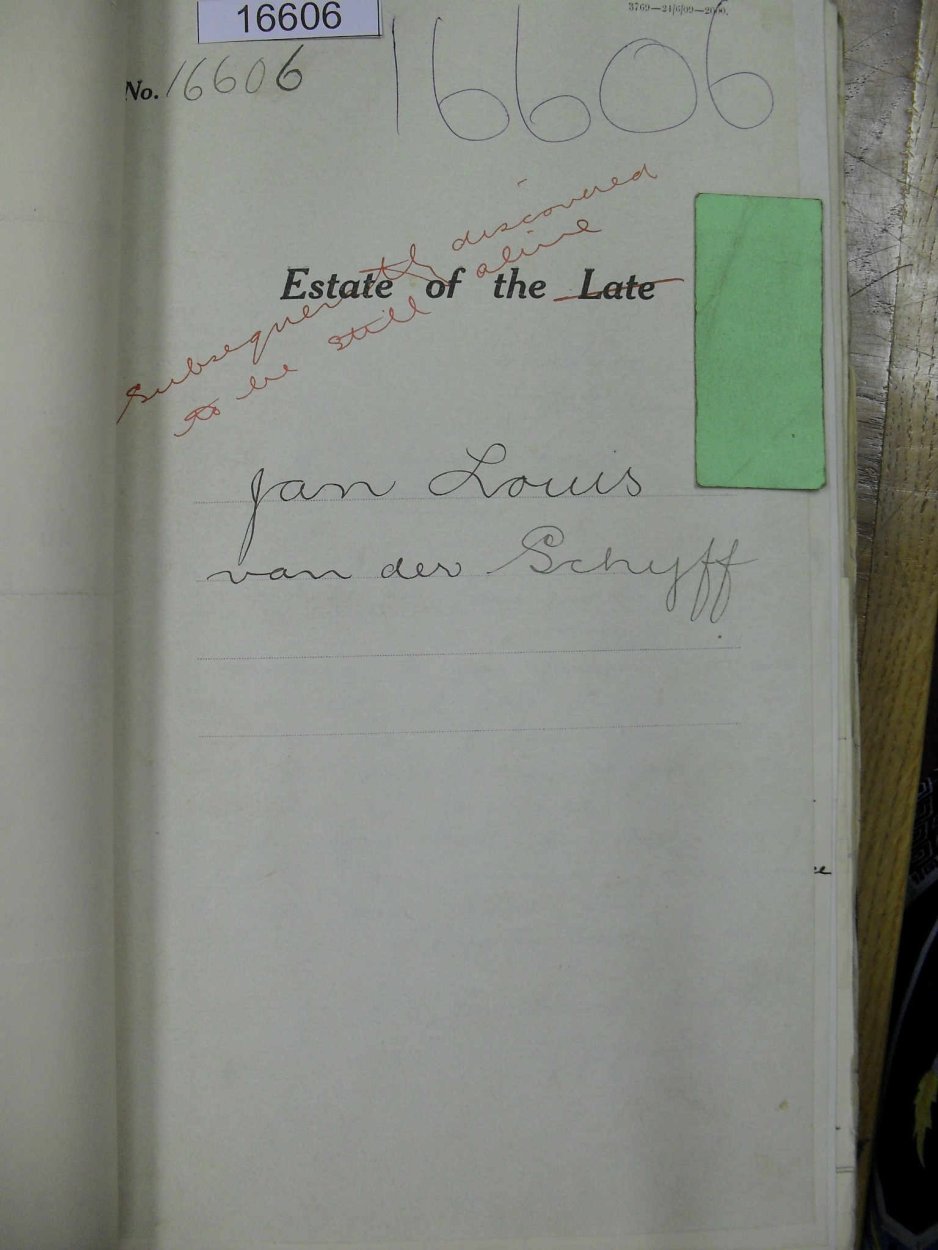 16606
3769—21/6/09—2000.
No. 16606 16606
Subsequently discovered
to be still alive
Estate of the Late
Jan Louis
van der Schyff